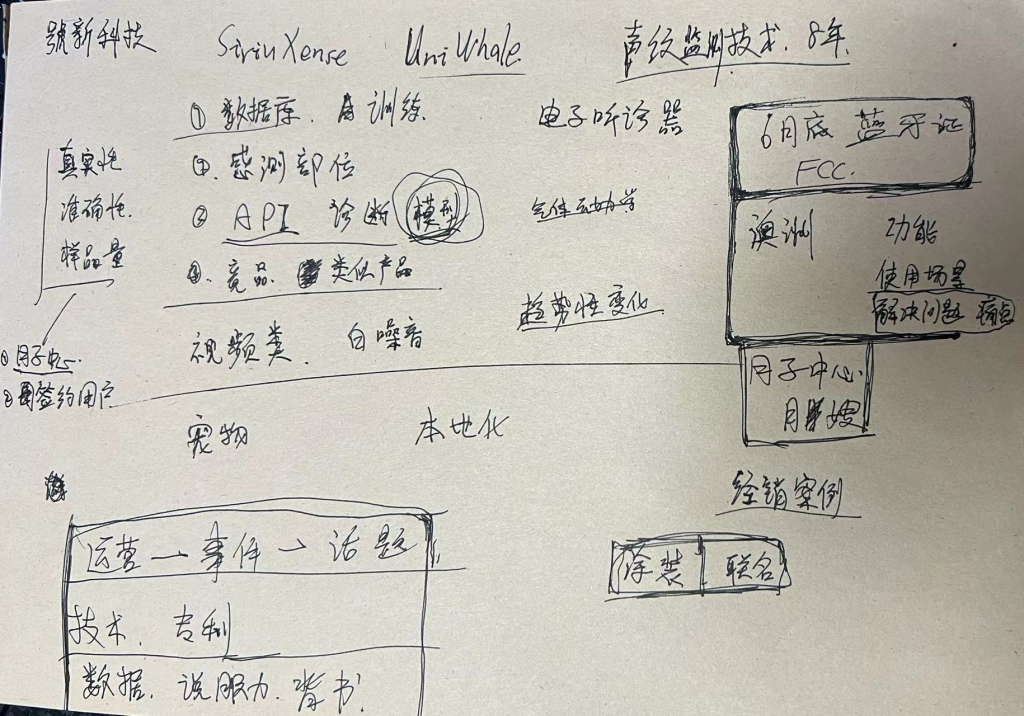 號新科技 SiriuXense UniWhale 声纹监测技术. 8年.
① 数据库. 训练.
电子听诊器
6月底 蓝牙证
FCC.
真实性
准确性.
样品量
②. 感测部位
② API 诊断 模型
气体动力学
澳洲 功能
使用场景
解决问题 痛点
③. 竞品. 类似产品
趋势性变化
视频类. 白噪音
① 月子中心.
② 签约用户
月子中心.
月嫂
宠物 本地化
经销案例
运营→事件→话题
涂装 联名
技术. 专利
数据. 说服力. 背书.